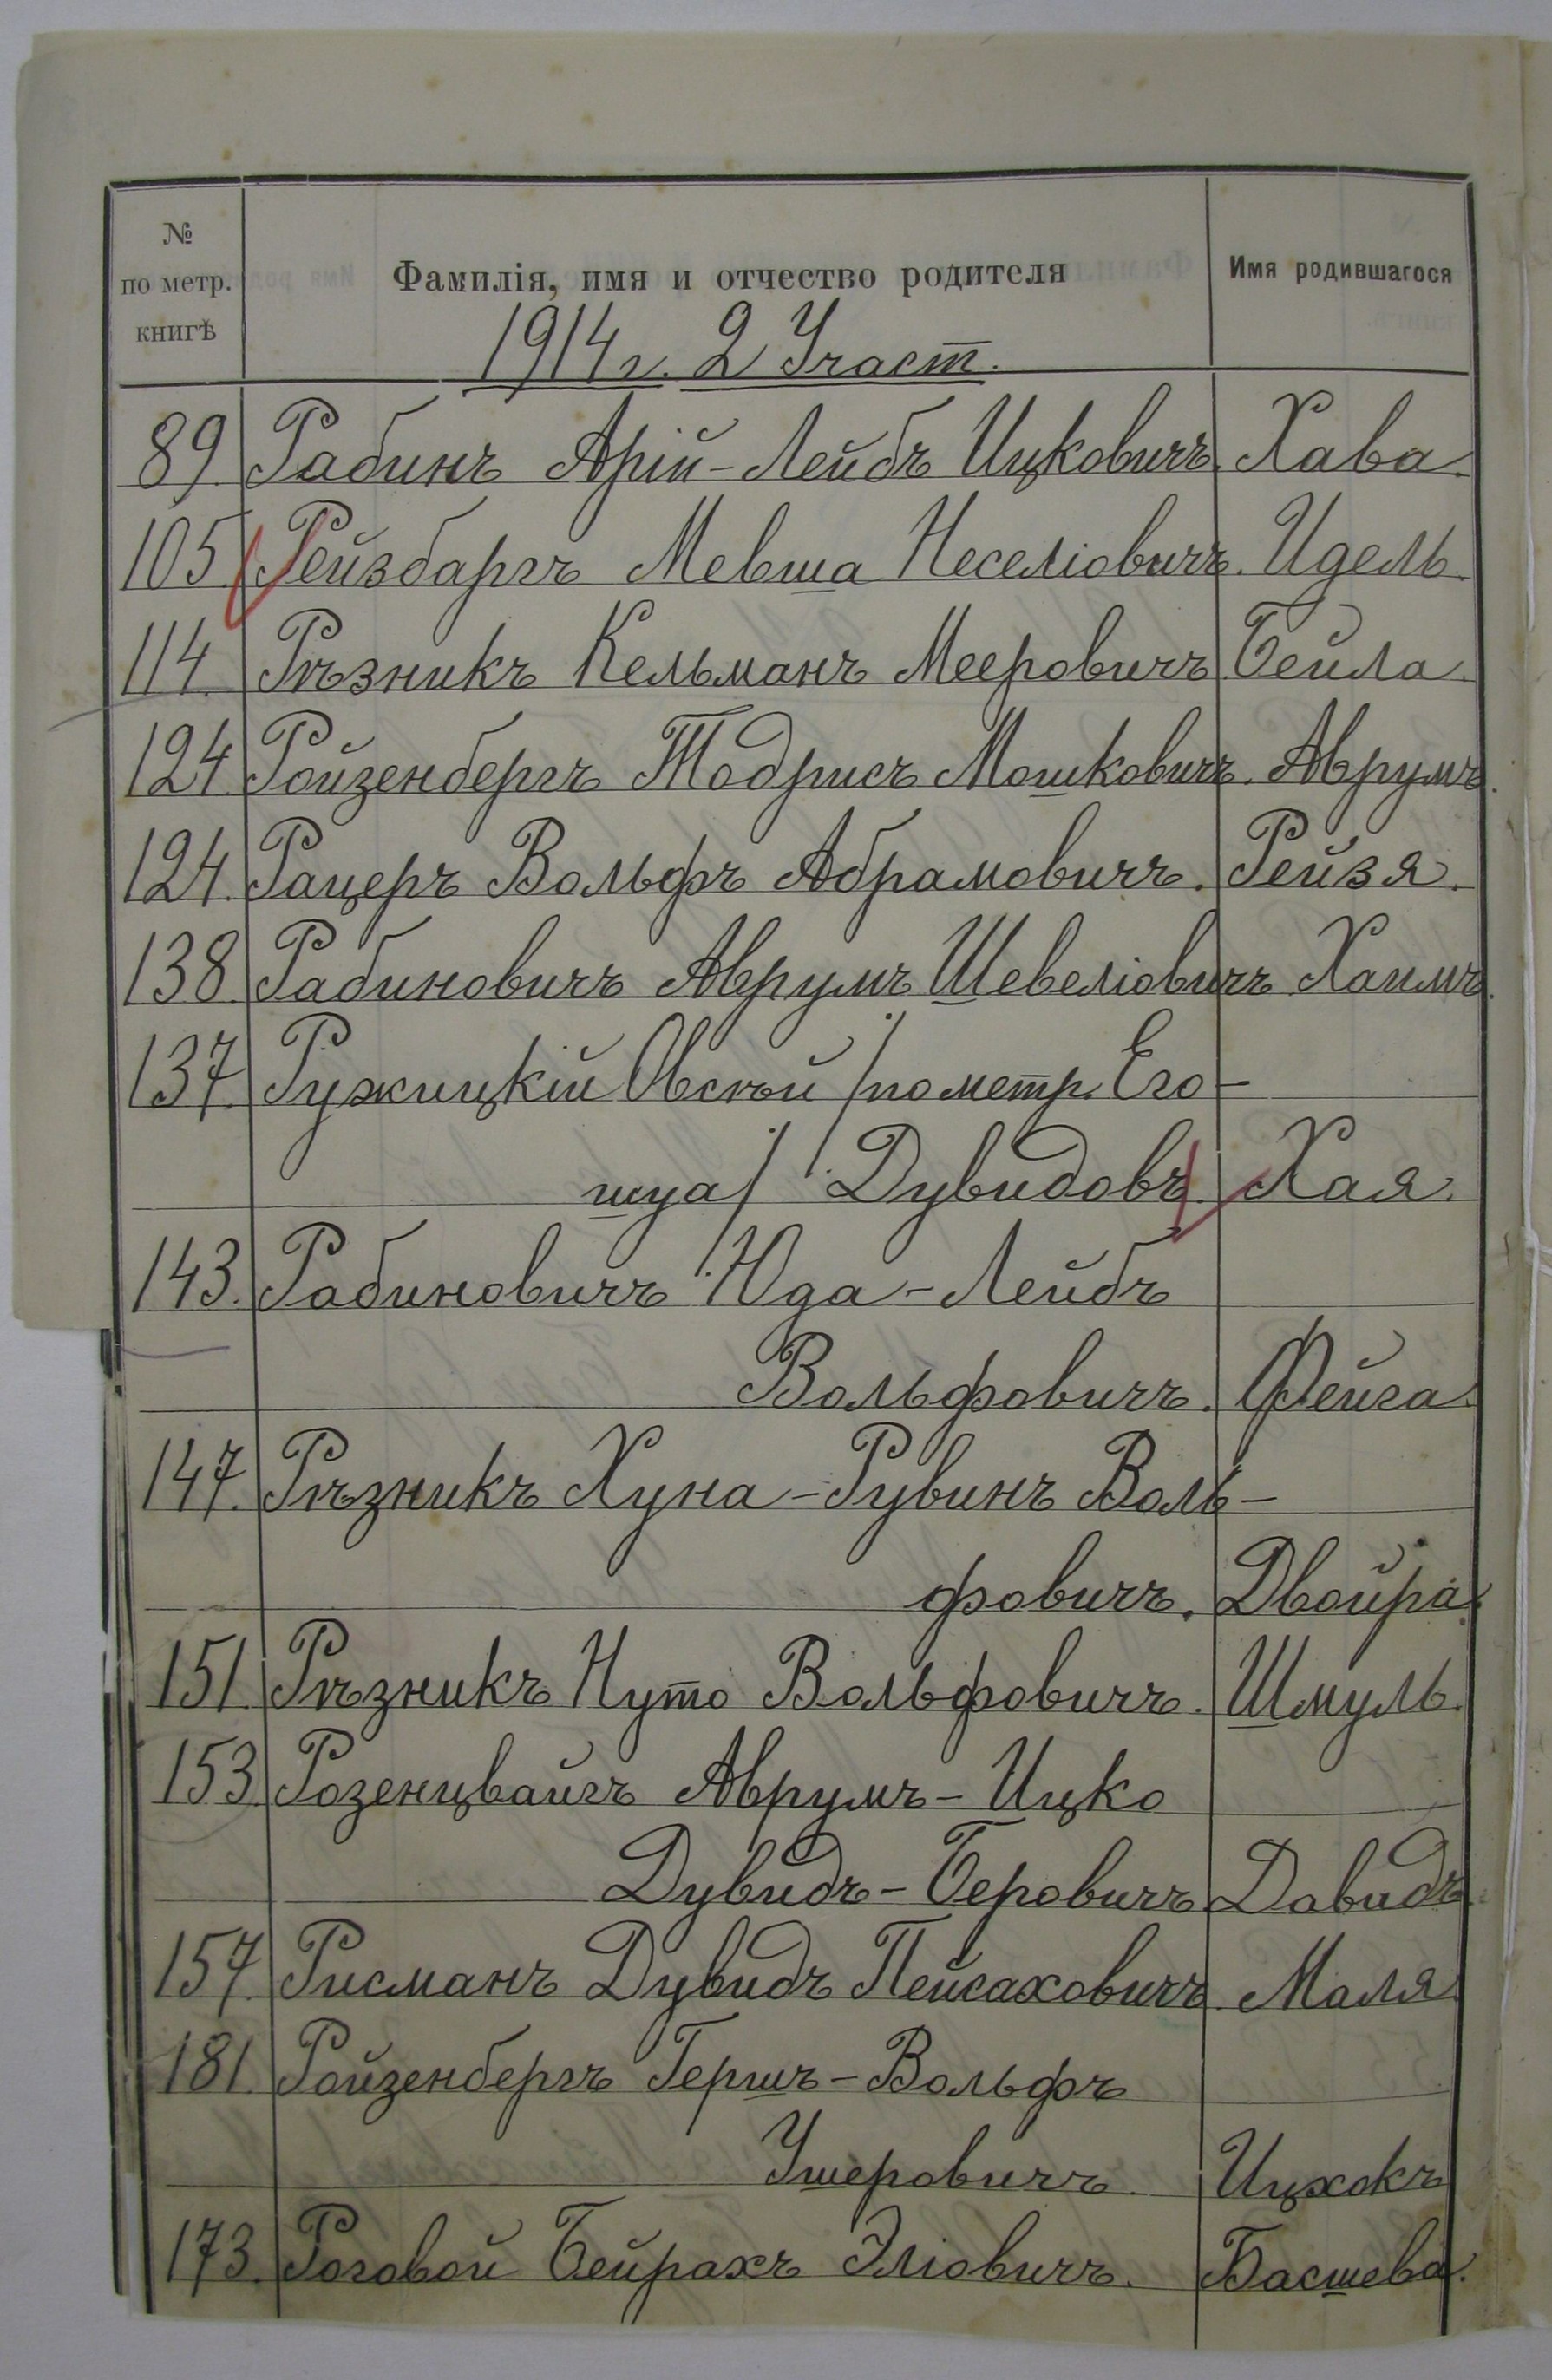 № по метр. книгѣ Фамилія, имя и отчество родителя Имя родившагося
1914 г. 2 Участ.
89. Рабинъ Арій-Лейбъ Ицковичъ. Хава.
105. Рейзбаргъ Мевша Неселіовичъ. Идель.
114. Рѣзникъ Кельманъ Мееровичъ. Бейла.
124. Ройзенбергъ Тодрисъ Мошковичъ. Аврумъ.
124. Рацеръ Вольфъ Абрамовичъ. Рейзя.
138. Рабиновичъ Аврумъ Шевеліовичъ. Хаимъ.
137. Ружицкій Овсѣй /по метр. Его-
шуа/ Дувидовъ. Хая.
143. Рабиновичъ Юда-Лейбъ
Вольфовичъ. Фейга.
147. Рѣзникъ Хуна-Рувинъ Воль-
фовичъ. Двойра.
151. Рѣзникъ Нуто Вольфовичъ. Шмуль.
153. Розенцвайгъ Аврумъ-Ицко
Дувидъ-Беровичъ. Давидъ.
157. Рисманъ Дувидъ Пейсаховичъ. Маля.
181. Ройзенбергъ Гершъ-Вольфъ
Ушеровичъ. Ицхокъ
173. Роговой Бейрахъ Эліовичъ. Басшева.